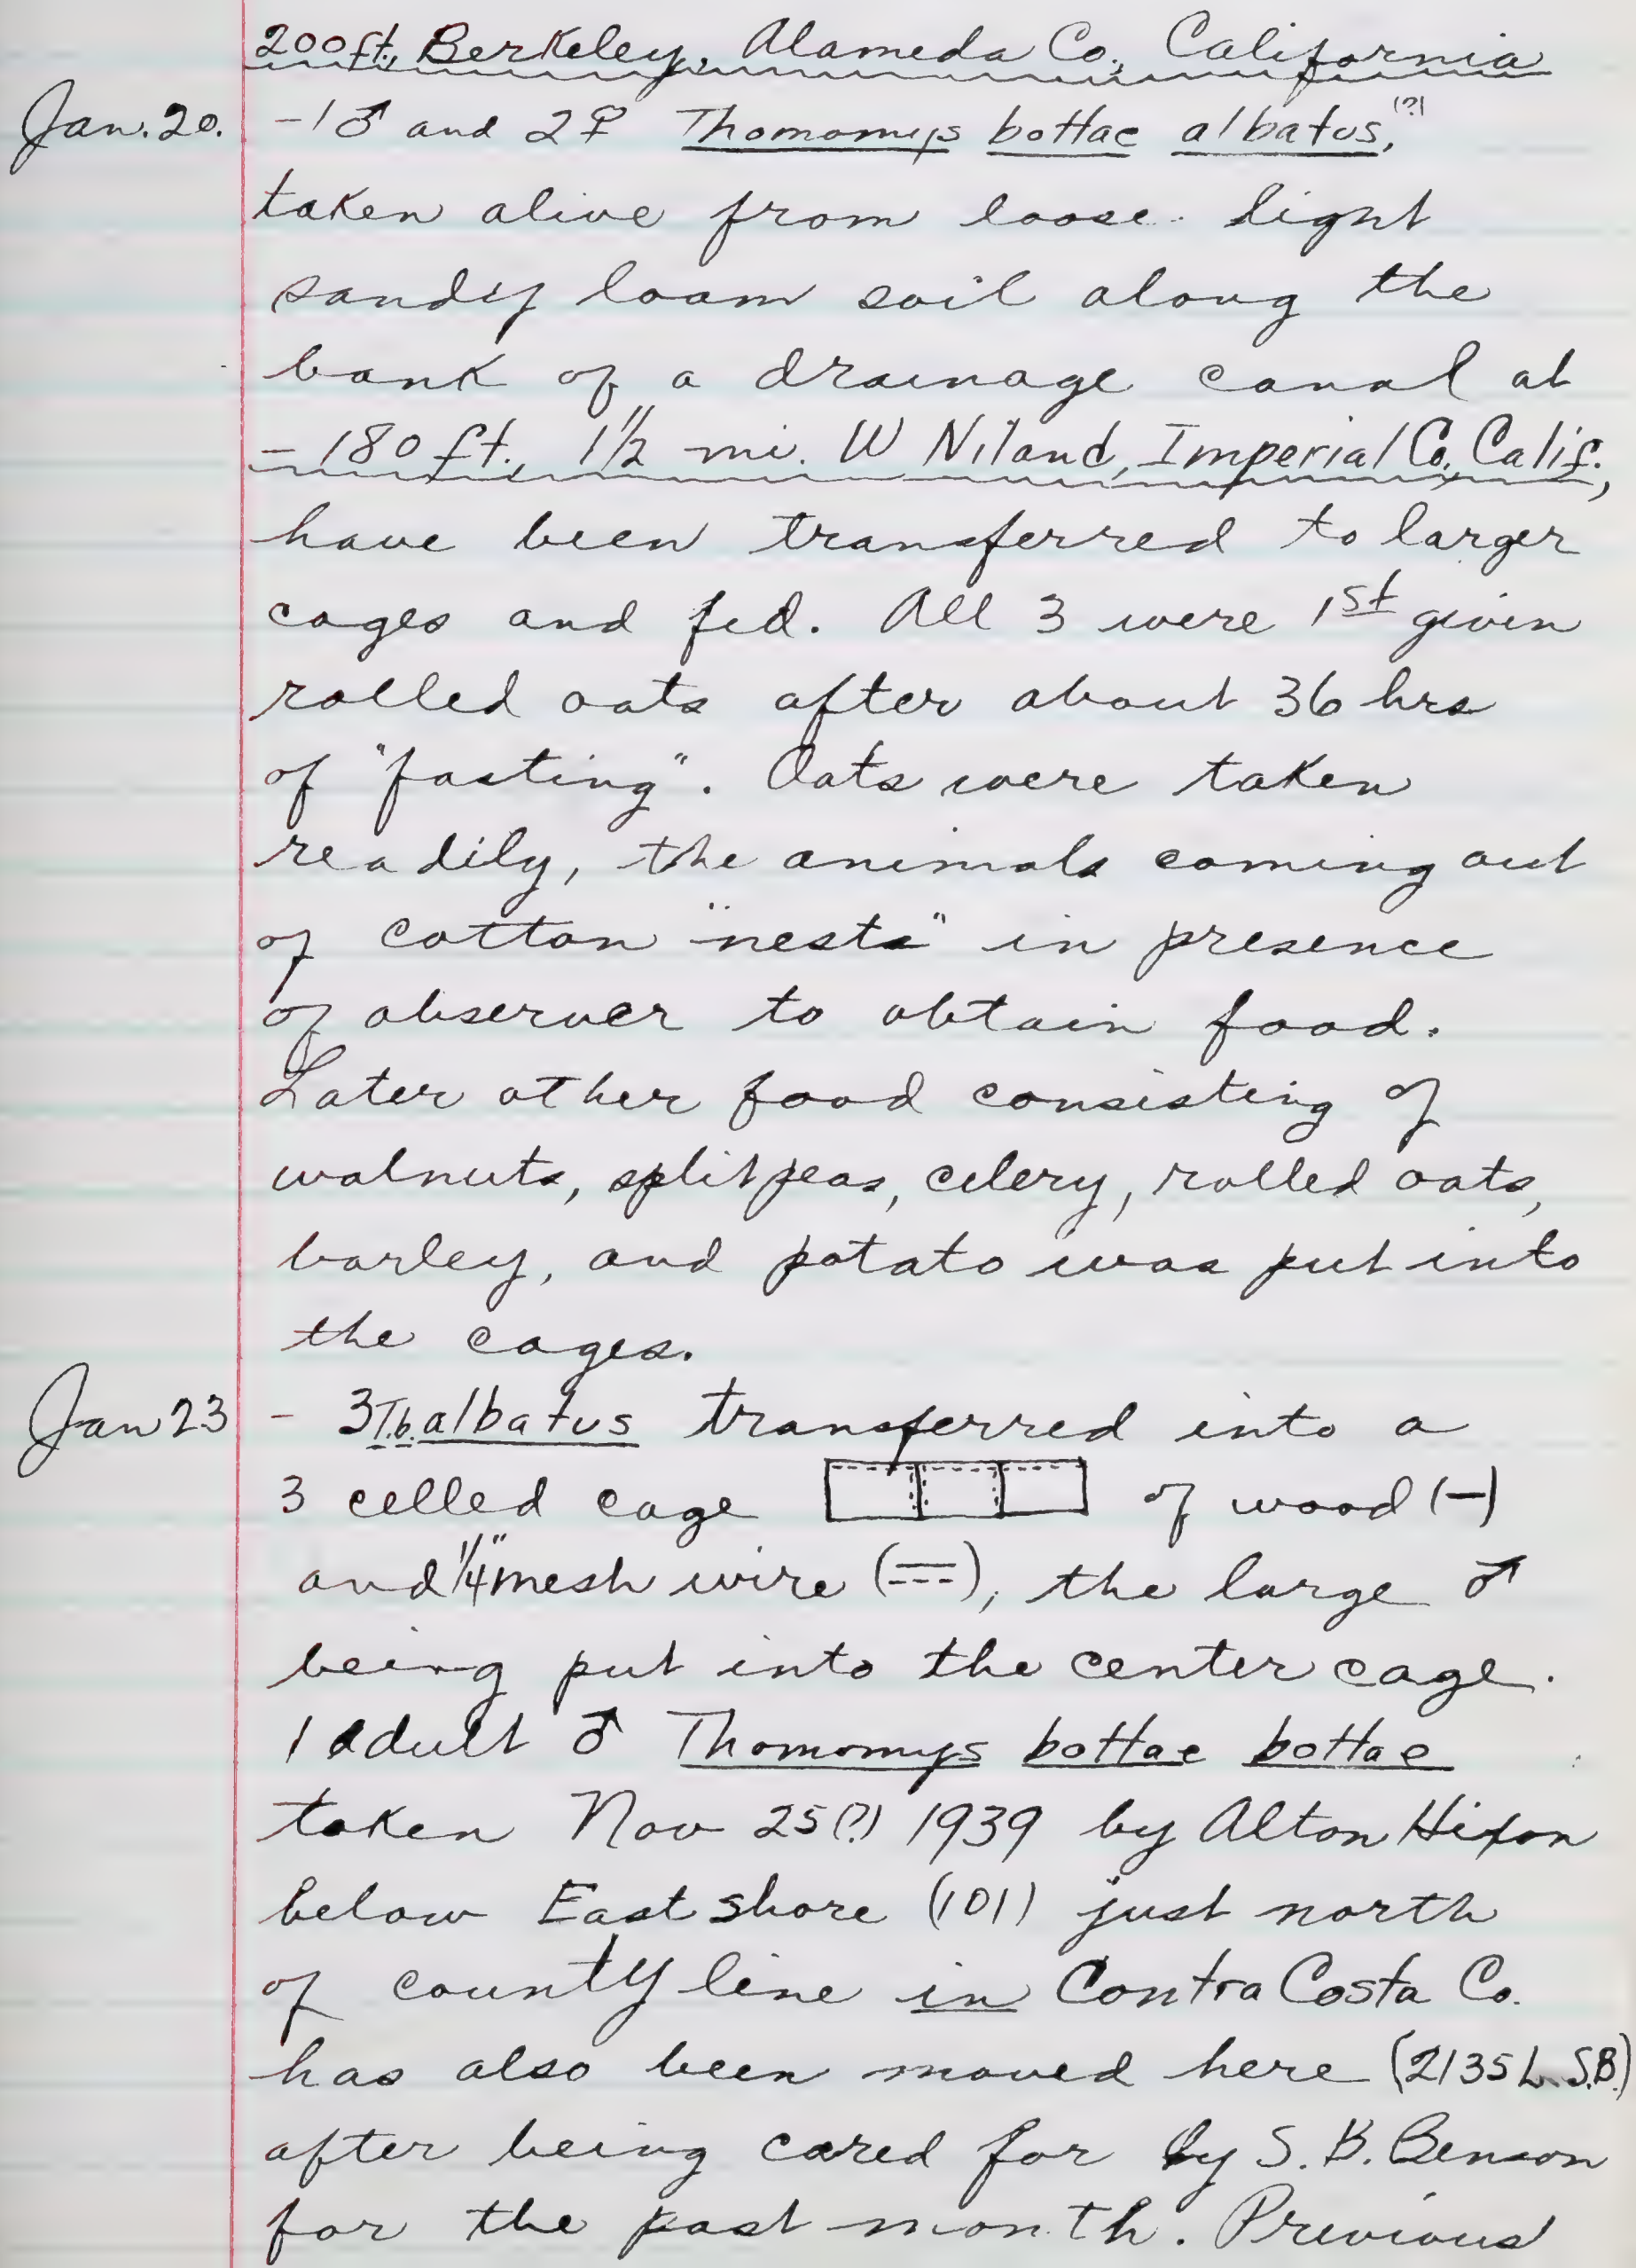 200 ft., Berkeley, Alameda Co., California
Jan. 20. - 1 ♂ and 2 ♀ Thomomys bottae albatus, (?)
taken alive from loose light
sandy loam soil along the
bank of a drainage canal at
- 180 ft., 1 1/2 mi. W Niland, Imperial Co., Calif.,
have been transferred to larger
cages and fed. All 3 were 1st given
rolled oats after about 36 hrs
of "fasting". Oats were taken
readily, the animals coming out
of cotton "nests" in presence
of observer to obtain food.
Later other food consisting of
walnuts, split peas, celery, rolled oats,
barley, and potato was put into
the cages.
Jan 23 - 3 T.b. albatus transferred into a
3 celled cage of wood (—)
and 1/4" mesh wire (===), the large ♂
being put into the center cage.
1 adult ♂ Thomomys bottae bottae
taken Nov 25(?) 1939 by Alton Hixon
below East shore (101) just north
of county line in Contra Costa Co.
has also been moved here (2135 L.S.B.)
after being cared for by S. B. Benson
for the past month. Previous